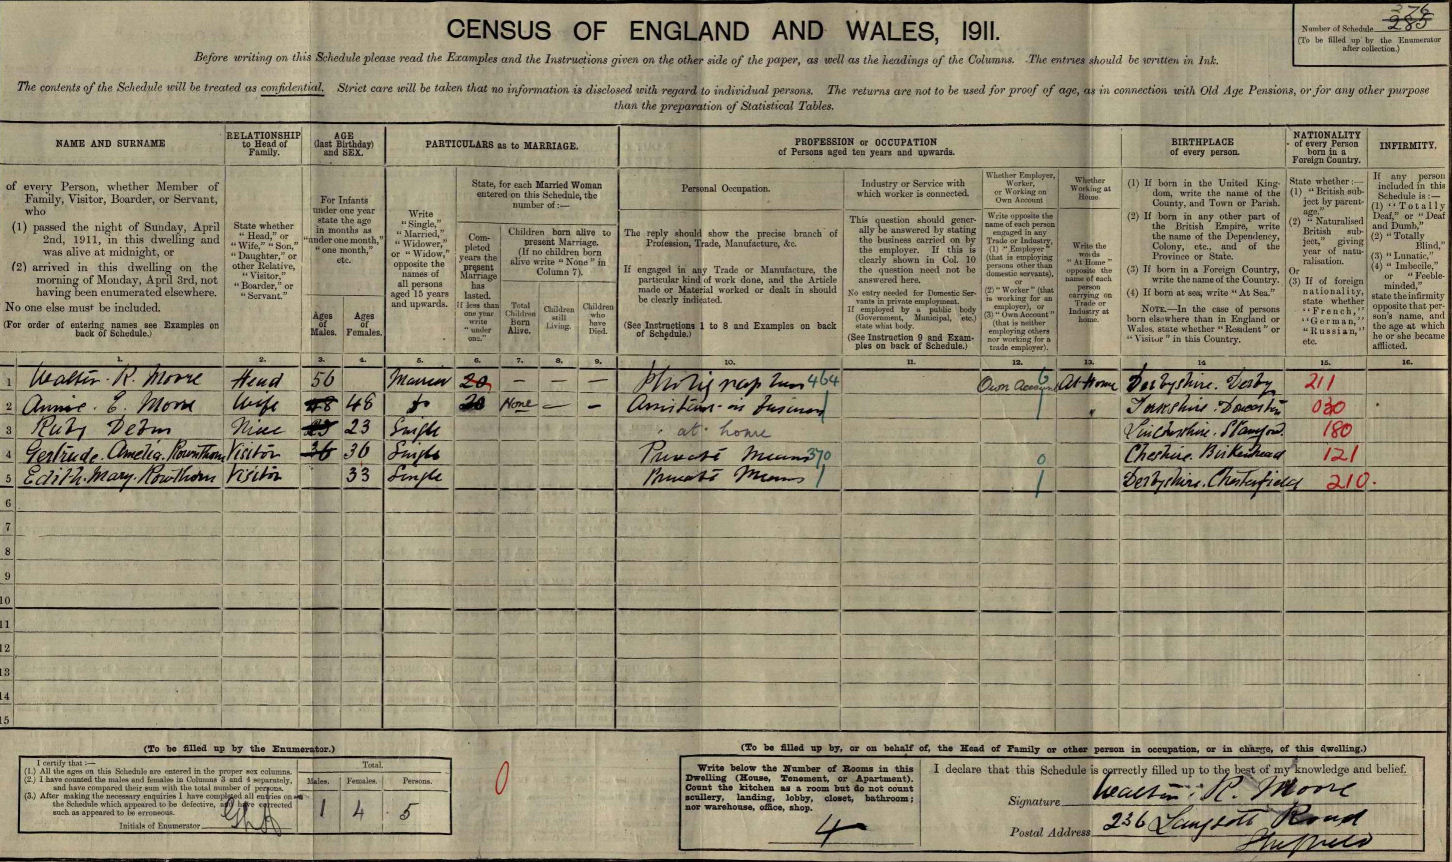 CENSUS OF ENGLAND AND WALES, 1911.
Number of Schedule 276
285
(To be filled up by the Enumerator
after collection.)
Before writing on this Schedule please read the Examples and the Instructions given on the other side of the paper, as well as the headings of the Columns. The entries should be written in Ink.
The contents of the Schedule will be treated as confidential. Strict care will be taken that no information is disclosed with regard to individual persons. The returns are not to be used for proof of age, as in connection with Old Age Pensions, or for any other purpose
than the preparation of Statistical Tables.
NAME AND SURNAME
of every Person, whether Member of
Family, Visitor, Boarder, or Servant,
who
(1) passed the night of Sunday, April
2nd, 1911, in this dwelling and
was alive at midnight, or
(2) arrived in this dwelling on the
morning of Monday, April 3rd, not
having been enumerated elsewhere.
No one else must be included.
(For order of entering names see Examples on
back of Schedule.)
RELATIONSHIP
to Head of
Family.
State whether
"Head," or
"Wife," "Son,"
"Daughter," or
other Relative,
"Visitor,"
"Boarder," or
"Servant."
AGE
(last Birthday)
and SEX.
For Infants
under one year
state the age
in months as
"under one month,"
"one month,"
etc.
Ages
of
Males.
Ages
of
Females.
PARTICULARS as to MARRIAGE.
Write
"Single,"
"Married,"
"Widower,"
or "Widow,"
opposite the
names of
all persons
aged 15 years
and upwards.
State, for each Married Woman
entered on this Schedule, the
number of:—
Com-
pleted
years the
present
Marriage
has
lasted.
If less than
one year
write
"under
one."
Children born alive to
present Marriage.
(If no children born
alive write "None" in
Column 7).
Total
Children
Born
Alive.
Children
still
Living.
Children
who
have
Died.
PROFESSION or OCCUPATION
of Persons aged ten years and upwards.
Personal Occupation.
The reply should show the precise branch of
Profession, Trade, Manufacture, &c.
If engaged in any Trade or Manufacture, the
particular kind of work done, and the Article
made or Material worked or dealt in should
be clearly indicated.
(See Instructions 1 to 8 and Examples on back
of Schedule.)
Industry or Service with
which worker is connected.
This question should gener-
ally be answered by stating
the business carried on by
the employer. If this is
clearly shown in Col. 10
the question need not be
answered here.
No entry needed for Domestic Ser-
vants in private employment.
If employed by a public body
(Government, Municipal, etc.)
state what body.
(See Instruction 9 and Exam-
ples on back of Schedule.)
Whether Employer,
Worker,
or Working on
Own Account
Write opposite the
name of each person
engaged in any
Trade or Industry,
(1) "Employer"
(that is employing
persons other than
domestic servants),
or
(2) "Worker" (that
is working for an
employer), or
(3) "Own Account"
(that is neither
employing others
nor working for a
trade employer).
Whether
Working at
Home.
Write the
words
"At Home"
opposite the
name of each
person
carrying on
Trade or
Industry at
home.
BIRTHPLACE
of every person.
(1) If born in the United King-
dom, write the name of the
County, and Town or Parish.
(2) If born in any other part of
the British Empire, write
the name of the Dependency,
Colony, etc., and of the
Province or State.
(3) If born in a Foreign Country,
write the name of the Country.
(4) If born at sea, write "At Sea."
NOTE.—In the case of persons
born elsewhere than in England or
Wales, state whether "Resident" or
"Visitor" in this Country.
NATIONALITY
of every Person
born in a
Foreign Country.
State whether:—
(1) "British sub-
ject by parent-
age,"
(2) "Naturalised
British sub-
ject," giving
year of natu-
ralisation.
Or
(3) If of foreign
nationality,
state whether
"French,"
"German,"
"Russian,"
etc.
INFIRMITY.
If any person
included in this
Schedule is:—
(1) "Totally
Deaf," or "Deaf
and Dumb,"
(2) "Totally
Blind,"
(3) "Lunatic,"
(4) "Imbecile,"
or "Feeble-
minded,"
state the infirmity
opposite that per-
son's name, and
the age at which
he or she became
afflicted.
1. 2. 3. 4. 5. 6. 7. 8. 9. 10. 11. 12. 13. 14 15. 16.
1 Walter. R. Moore Head 56 Married 20 — — — Photographer 464 Own Account 6 At Home Derbyshire. Derby 211
2 Annie. E. Moore Wife 48 48 do 20 None — — Assistant in business 1 " Yorkshire. Doncaster 030
3 Ruby Niece 23 23 Single at home Lincolnshire. Stamford 180
4 Gertrude. Amelia. Rowthorn Visitor 36 36 Single Private Means 370 0 Cheshire. Birkenhead 121
5 Edith. Mary. Rowthorn Visitor 33 Single Private Means 1 1 Derbyshire. Chesterfield 210.
6
7
8
9
10
11
12
13
14
15
(To be filled up by the Enumerator.)
I certify that:—
(1.) All the ages on this Schedule are entered in the proper sex columns.
(2.) I have counted the males and females in Columns 3 and 4 separately,
and have compared their sum with the total number of persons.
(3.) After making the necessary enquiries I have completed all entries on
the Schedule which appeared to be defective, and have corrected
such as appeared to be erroneous.
Initials of Enumerator
Total.
Males. Females. Persons.
1 4 5
0
(To be filled up by, or on behalf of, the Head of Family or other person in occupation, or in charge, of this dwelling.)
Write below the Number of Rooms in this
Dwelling (House, Tenement, or Apartment).
Count the kitchen as a room but do not count
scullery, landing, lobby, closet, bathroom;
nor warehouse, office, shop.
4
I declare that this Schedule is correctly filled up to the best of my knowledge and belief.
Signature Walter. R. Moore
Postal Address 236 Langsett Road
Sheffield